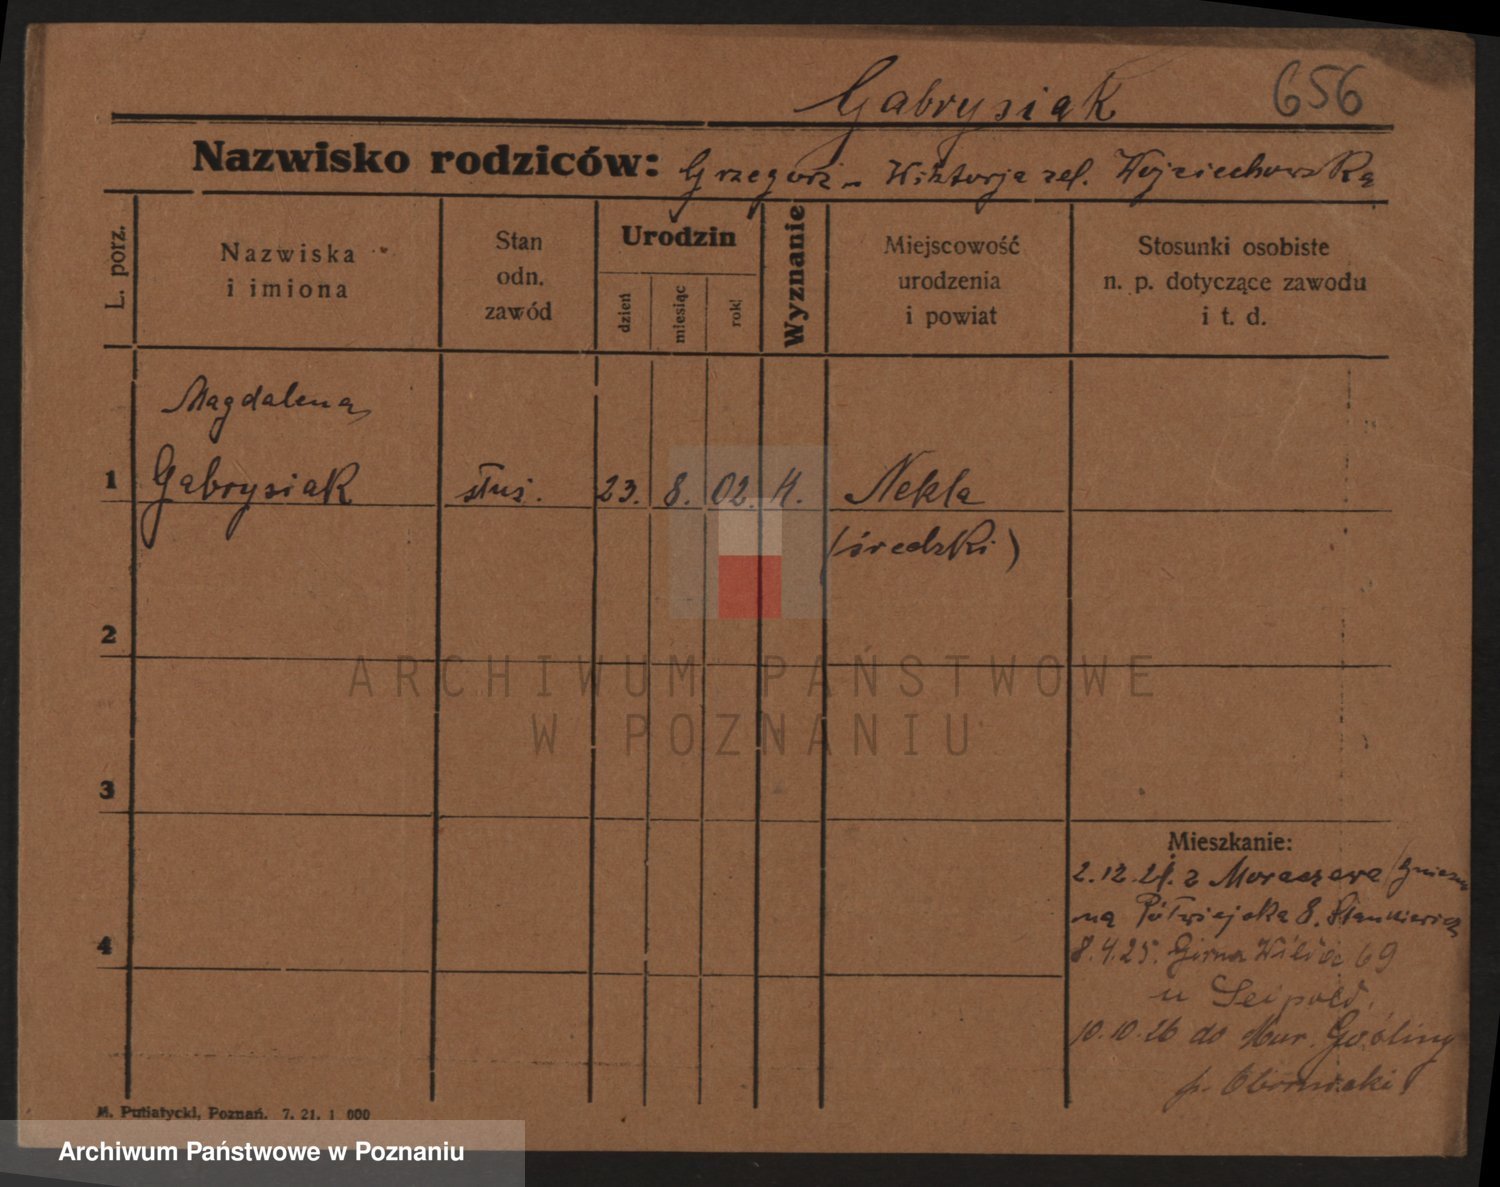 Gabrysiak 656
Nazwisko rodziców: Grzegorz - Wiktorja zd. Wojciechowska
L. porz.
Nazwiska
i imiona
Stan
odn.
zawód
Urodzin
dzień
miesiąc
rok
Wyznanie
Miejscowość
urodzenia
i powiat
Stosunki osobiste
n. p. dotyczące zawodu
i t. d.
Magdalena
1 Gabrysiak służ. 23. 8. 02. Nekla
(średzki)
2
ARCHIWUM PAŃSTWOWE
W POZNANIU
3
Mieszkanie:
2.12.24. z
na Półwiejska 8.
4
8.4.25. Górna Wilda 69
u
10.10.26 do Mur. Gośliny
p. Obornicki
M. Putiatycki, Poznań. 7. 21. 1 000
Archiwum Państwowe w Poznaniu